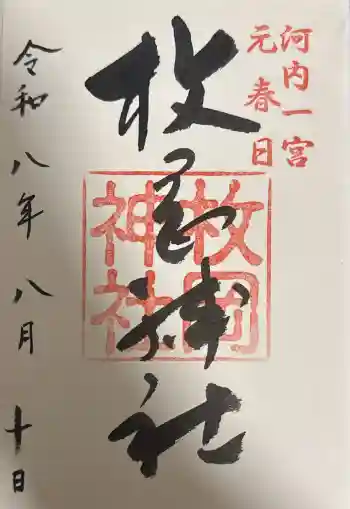 河内一宮
元春日
枚岡神社
枚岡
神社
令和八年八月十日